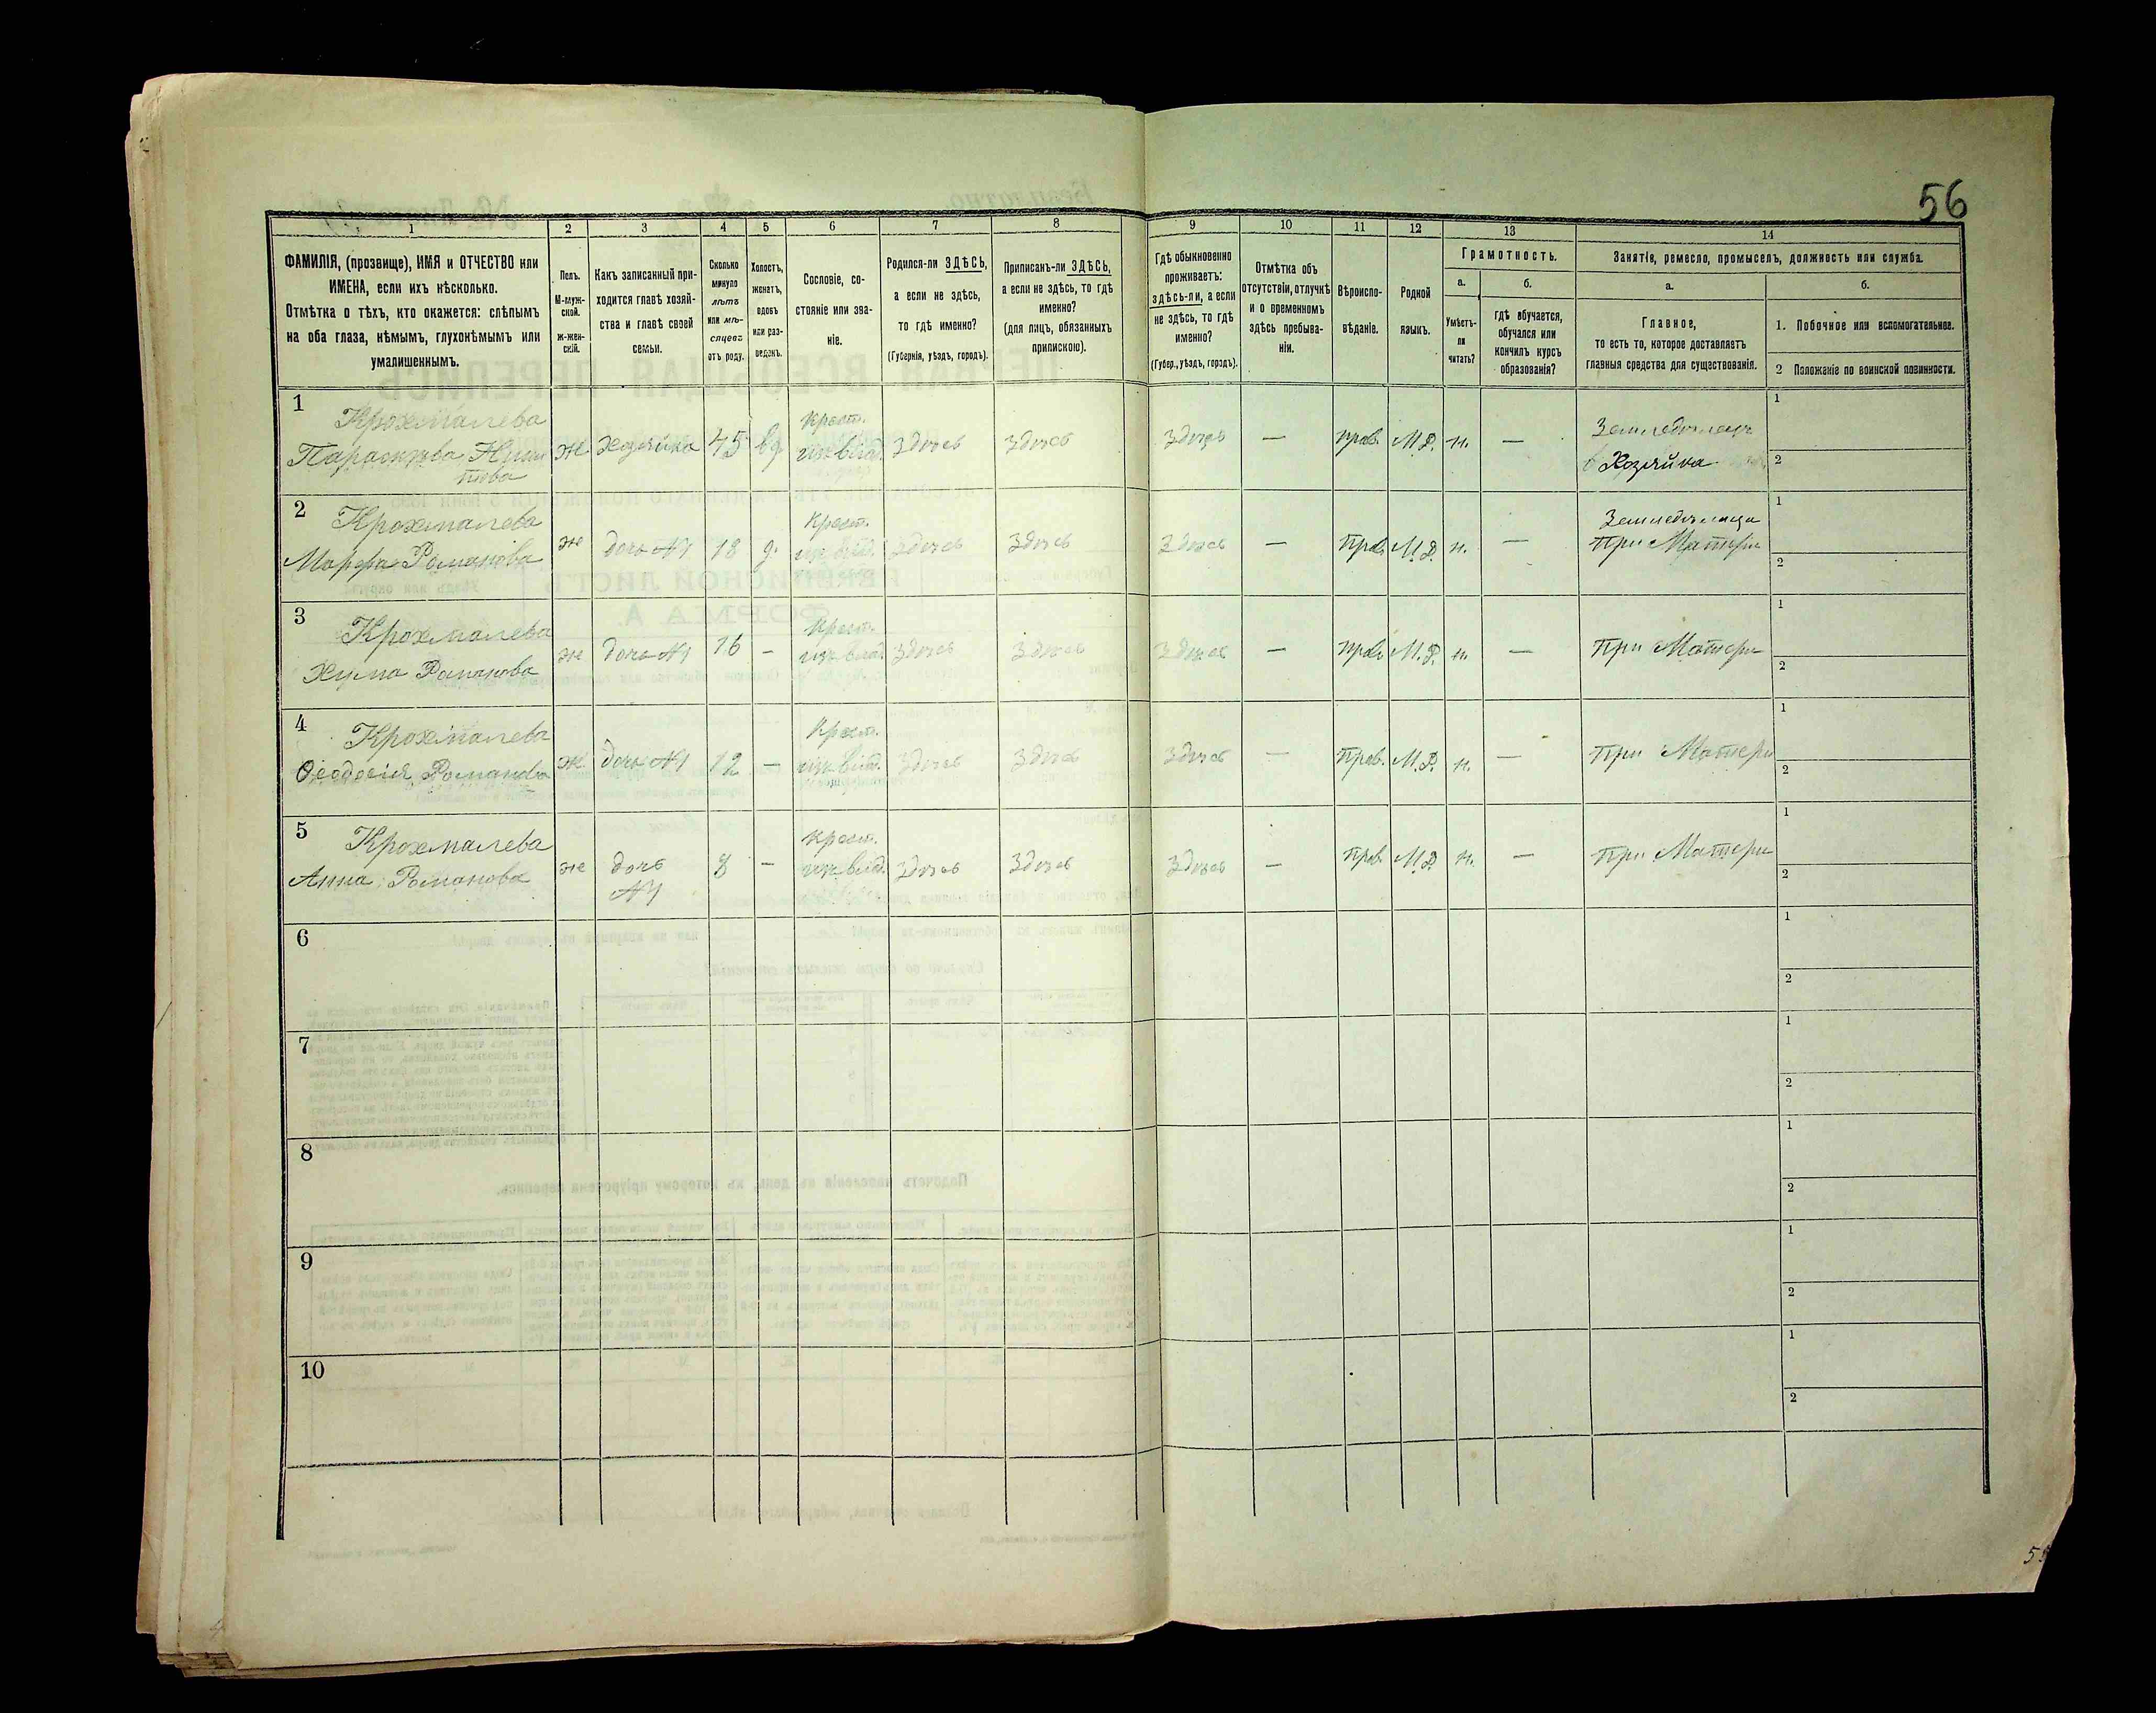 56
1
2
3
4
5
6
7
8
9
10
11
12
13
14
ФАМИЛІЯ, (прозвище), ИМЯ и ОТЧЕСТВО или
ИМЕНА, если ихъ нѣсколько.
Отмѣтка о тѣхъ, кто окажется: слѣпымъ
на оба глаза, нѣмымъ, глухонѣмымъ или
умалишеннымъ.
Полъ.
М-муж-
ской.
Ж-жен-
скій.
Какъ записанный при-
ходится главѣ хозяй-
ства и главѣ своей
семьи.
Сколько
минуло
лѣтъ
или мѣ-
сяцевъ
отъ роду.
Холостъ,
женатъ,
вдовъ
или раз-
веденъ.
Сословіе, со-
стояніе или зва-
ніе.
Родился-ли ЗДѢСЬ,
а если не здѣсь,
то гдѣ именно?
(Губернія, уѣздъ, городъ).
Приписанъ-ли ЗДѢСЬ,
а если не здѣсь, то гдѣ
именно?
(для лицъ, обязанныхъ
припискою).
Гдѣ обыкновенно
проживаетъ:
здѣсь-ли, а если
не здѣсь, то гдѣ
именно?
(Губер., уѣздъ, городъ).
Отмѣтка объ
отсутствіи, отлучкѣ
и о временномъ
здѣсь пребыва-
ніи.
Вѣроиспо-
вѣданіе.
Родной
языкъ.
Грамотность.
а.
Умѣетъ-
ли
читать?
б.
гдѣ обучается,
обучался или
кончилъ курсъ
образованія?
Занятіе, ремесло, промыселъ, должность или служба.
а.
Главное,
то есть то, которое доставляетъ
главныя средства для существованія.
б.
1. Побочное или вспомогательное.
2 Положеніе по воинской повинности.
1
Крохмалева
Параскева
ж
Хозяйка
45
вд.
Крест.
Здѣсь
Здѣсь
Здѣсь
—
прав.
М.Р.
н.
—
Хозяйка
1
2
2
Крохмалева
Марфа Романова
ж
дочь №1
18
д.
Крест.
Здѣсь
Здѣсь
Здѣсь
—
прав.
М.Р.
н.
—
При Матери
1
2
3
Крохмалева
Хима Романова
ж
дочь №1
16
—
Крест.
Здѣсь
Здѣсь
Здѣсь
—
прав.
М.Р.
н.
—
при Матери
1
2
4
Крохмалева
Ѳеодосія Романова
ж
дочь №1
12
—
Крест.
Здѣсь
Здѣсь
Здѣсь
—
Прав.
М.Р.
н.
—
при Матери
1
2
5
Крохмалева
Анна Романова
ж
дочь
№1
8
—
Крест.
Здѣсь
Здѣсь
Здѣсь
—
прав.
М.Р.
н.
—
при Матери
1
2
6
1
2
7
1
2
8
1
2
9
1
2
10
1
2